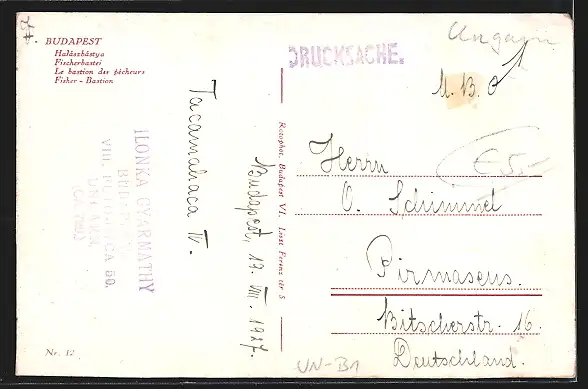 BUDAPEST
Halászbástya
Fischerbastei
Le bastion des pêcheurs
Fisher - Bastion
DRUCKSACHE.
Ungarn
M. B. O
E 5.-
Tacamahaca Tr.
Budapest, 19. VIII. 1927.
ILONKA GYARMATHY
BUDAPEST
VIII.
80.
Rotophot, Budapest VI. Liszt Ferenc tér 8
Herrn
O. Schimmel
Pirmasens.
Bitscherstr. 16.
Deutschland.
Nr. 12
UN-B1